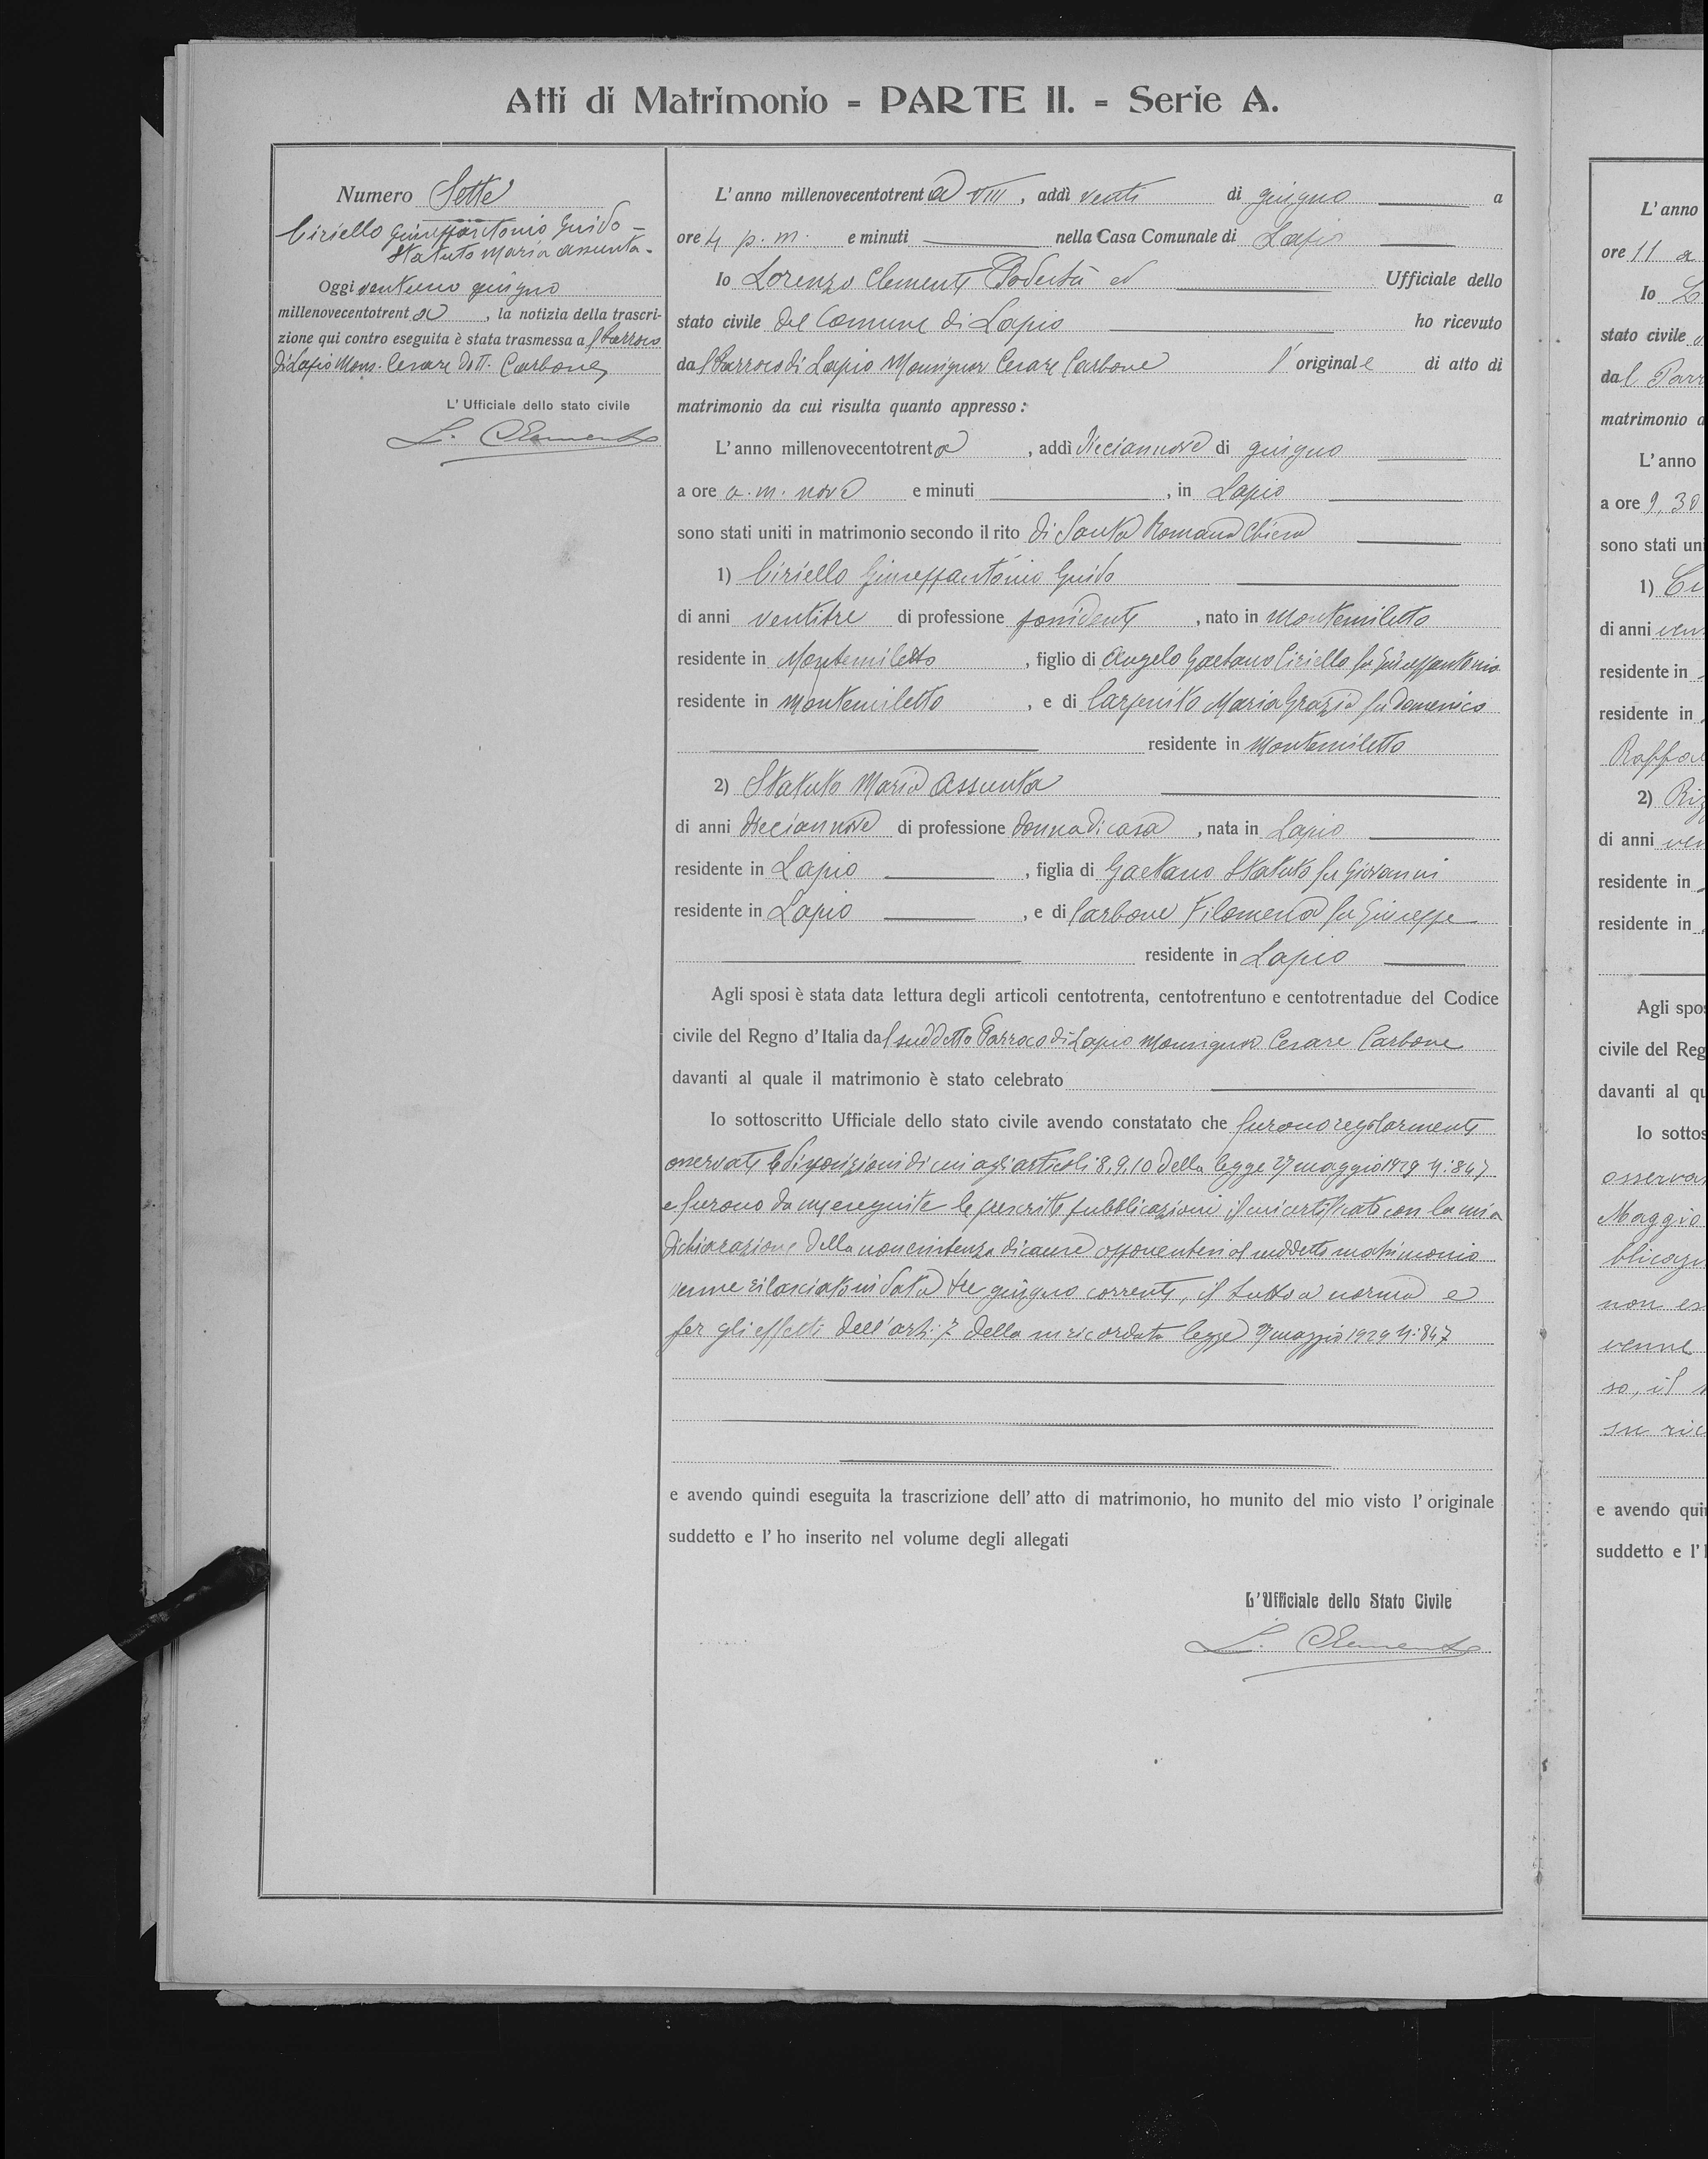 Atti di Matrimonio - PARTE II. - Serie A.
Numero Sette
Ciriello Giuseppantonio Guido =
Statuto Maria Assunta -
Oggi ventuno giugno
millenovecentotrenta, la notizia della trascri-
zione qui contro eseguita è stata trasmessa al Parroco
di Lapio Mons. Cesare Dott. Carbone
L'Ufficiale dello stato civile
L. Clemente
L'anno millenovecentotrenta VIII, addì venti di giugno a
ore 4 p. m. e minuti nella Casa Comunale di Lapio
Io Lorenzo Clemente Podestà ed Ufficiale dello
stato civile del Comune di Lapio ho ricevuto
dal Parroco di Lapio Monsignor Cesare Carbone l'originale di atto di
matrimonio da cui risulta quanto appresso:
L'anno millenovecentotrenta, addì diciannove di giugno
a ore a. m. nove e minuti, in Lapio
sono stati uniti in matrimonio secondo il rito di Santa Romana Chiesa
1) Ciriello Giuseppantonio Guido
di anni ventitre di professione possidente, nato in Montemiletto
residente in Montemiletto, figlio di Angelo Gaetano Ciriello fu Giuseppantonio
residente in Montemiletto, e di Carpenito Maria Grazia fu Domenico
residente in Montemiletto
2) Statuto Maria Assunta
di anni diciannove di professione donna di casa, nata in Lapio
residente in Lapio, figlia di Gaetano Statuto fu Giovanni
residente in Lapio, e di Carbone Filomena fu Giuseppe
residente in Lapio
Agli sposi è stata data lettura degli articoli centotrenta, centotrentuno e centotrentadue del Codice
civile del Regno d'Italia dal suddetto Parroco di Lapio Monsignor Cesare Carbone
davanti al quale il matrimonio è stato celebrato
Io sottoscritto Ufficiale dello stato civile avendo constatato che furono regolarmente
osservate le disposizioni di cui agli articoli 8, 9, 10 della legge 27 maggio 1929 N: 847
e furono da me eseguite le prescritte pubblicazioni, il cui certificato con la mia
dichiarazione della non esistenza di cause opponentesi al suddetto matrimonio
venne rilasciato in data tre giugno corrente, il tutto a norma e
per gli effetti dell'art: 7 della su ricordata legge 27 maggio 1929 N: 847
e avendo quindi eseguita la trascrizione dell'atto di matrimonio, ho munito del mio visto l'originale
suddetto e l'ho inserito nel volume degli allegati
L'Ufficiale dello Stato Civile
L. Clemente
L'anno
ore 11 a
Io
stato civile
dal Parr
matrimonio
L'anno
a ore 9,30
sono stati uni
1)
di anni ven
residente in
residente in
Raffae
2)
di anni
residente in
residente in
Agli spos
civile del Reg
davanti al qu
Io sottos
osserva
Maggio
blicazi
non es
venne
so, il
su ric
e avendo quin
suddetto e l'h